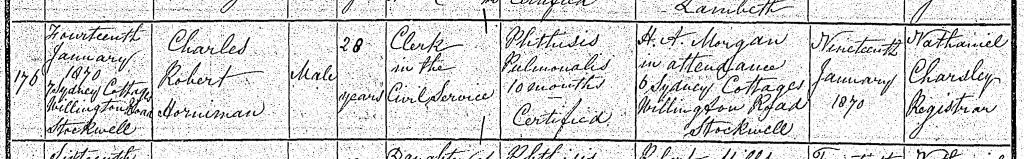 Certified
Lambeth
176
Fourteenth
January
1870
7 Sydney Cottages
Willington Road
Stockwell
Charles
Robert
Horniman
Male
28
years
Clerk
in the
Civil Service
Phthisis
Pulmonalis
10 months
Certified
H. A. Morgan
in attendance
6, Sydney Cottages
Willington Road
Stockwell
Nineteenth
January
1870
Nathaniel
Charsley
Registrar
Sixteenth
Phthisis